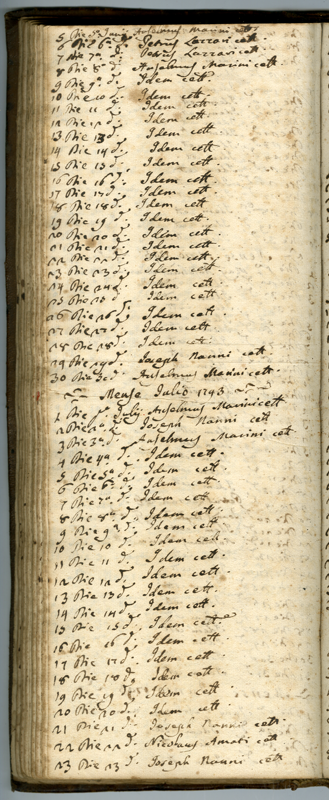 5 Die 5ª Junii Anselmus Marini cett.
6 Die 6ª d.º Petrus Lazzari cett.
7 Die 7ª d.º Petrus Lazzari cett.
8 Die 8ª d.º Anselmus Marini cett.
9 Die 9ª d.º Idem cett.
10 Die 10 d.º Idem cett.
11 Die 11 d.º Idem cett.
12 Die 12 d.º Idem cett.
13 Die 13 d.º Idem cett.
14 Die 14 d.º Idem cett.
15 Die 15 d.º Idem cett.
16 Die 16 d.º Idem cett.
17 Die 17 d.º Idem cett.
18 Die 18 d.º Idem cett.
19 Die 19 d.º Idem cett.
20 Die 20 d.º Idem cett.
21 Die 21 d.º Idem cett.
22 Die 22 d.º Idem cett.
23 Die 23 d.º Idem cett.
24 Die 24 d.º Idem cett.
25 Die 25 d.º Idem cett.
26 Die 26 d.º Idem cett.
27 Die 27 d.º Idem cett.
28 Die 28 d.º Idem cett.
29 Die 29 d.º Joseph Nanni cett.
30 Die 30 d.º Anselmus Marini cett.
Mense Julio 1743
1 Die pª Julij Anselmus Marini cett
2 Die 2ª d.º Joseph Nanni cett
3 Die 3ª d.º Anselmus Marini cett.
4 Die 4ª d.º Idem cett.
5 Die 5ª d.º Idem cett.
6 Die 6ª d.º Idem cett.
7 Die 7ª d.º Idem cett.
8 Die 8ª d.º Idem cett.
9 Die 9ª d.º Idem cett.
10 Die 10 d.º Idem cett.
11 Die 11 d.º Idem cett.
12 Die 12 d.º Idem cett.
13 Die 13 d.º Idem cett.
14 Die 14 d.º Idem cett.
15 Die 15 d.º Idem cett.
16 Die 16 d.º Idem cett.
17 Die 17 d.º Idem cett.
18 Die 18 d.º Idem cett.
19 Die 19 d.º Idem cett.
20 Die 20 d.º Idem cett.
21 Die 21 d.º Joseph Nanni cett.
22 Die 22 d.º Nicolaus Amati cett
23 Die 23 d.º Joseph Nanni cett